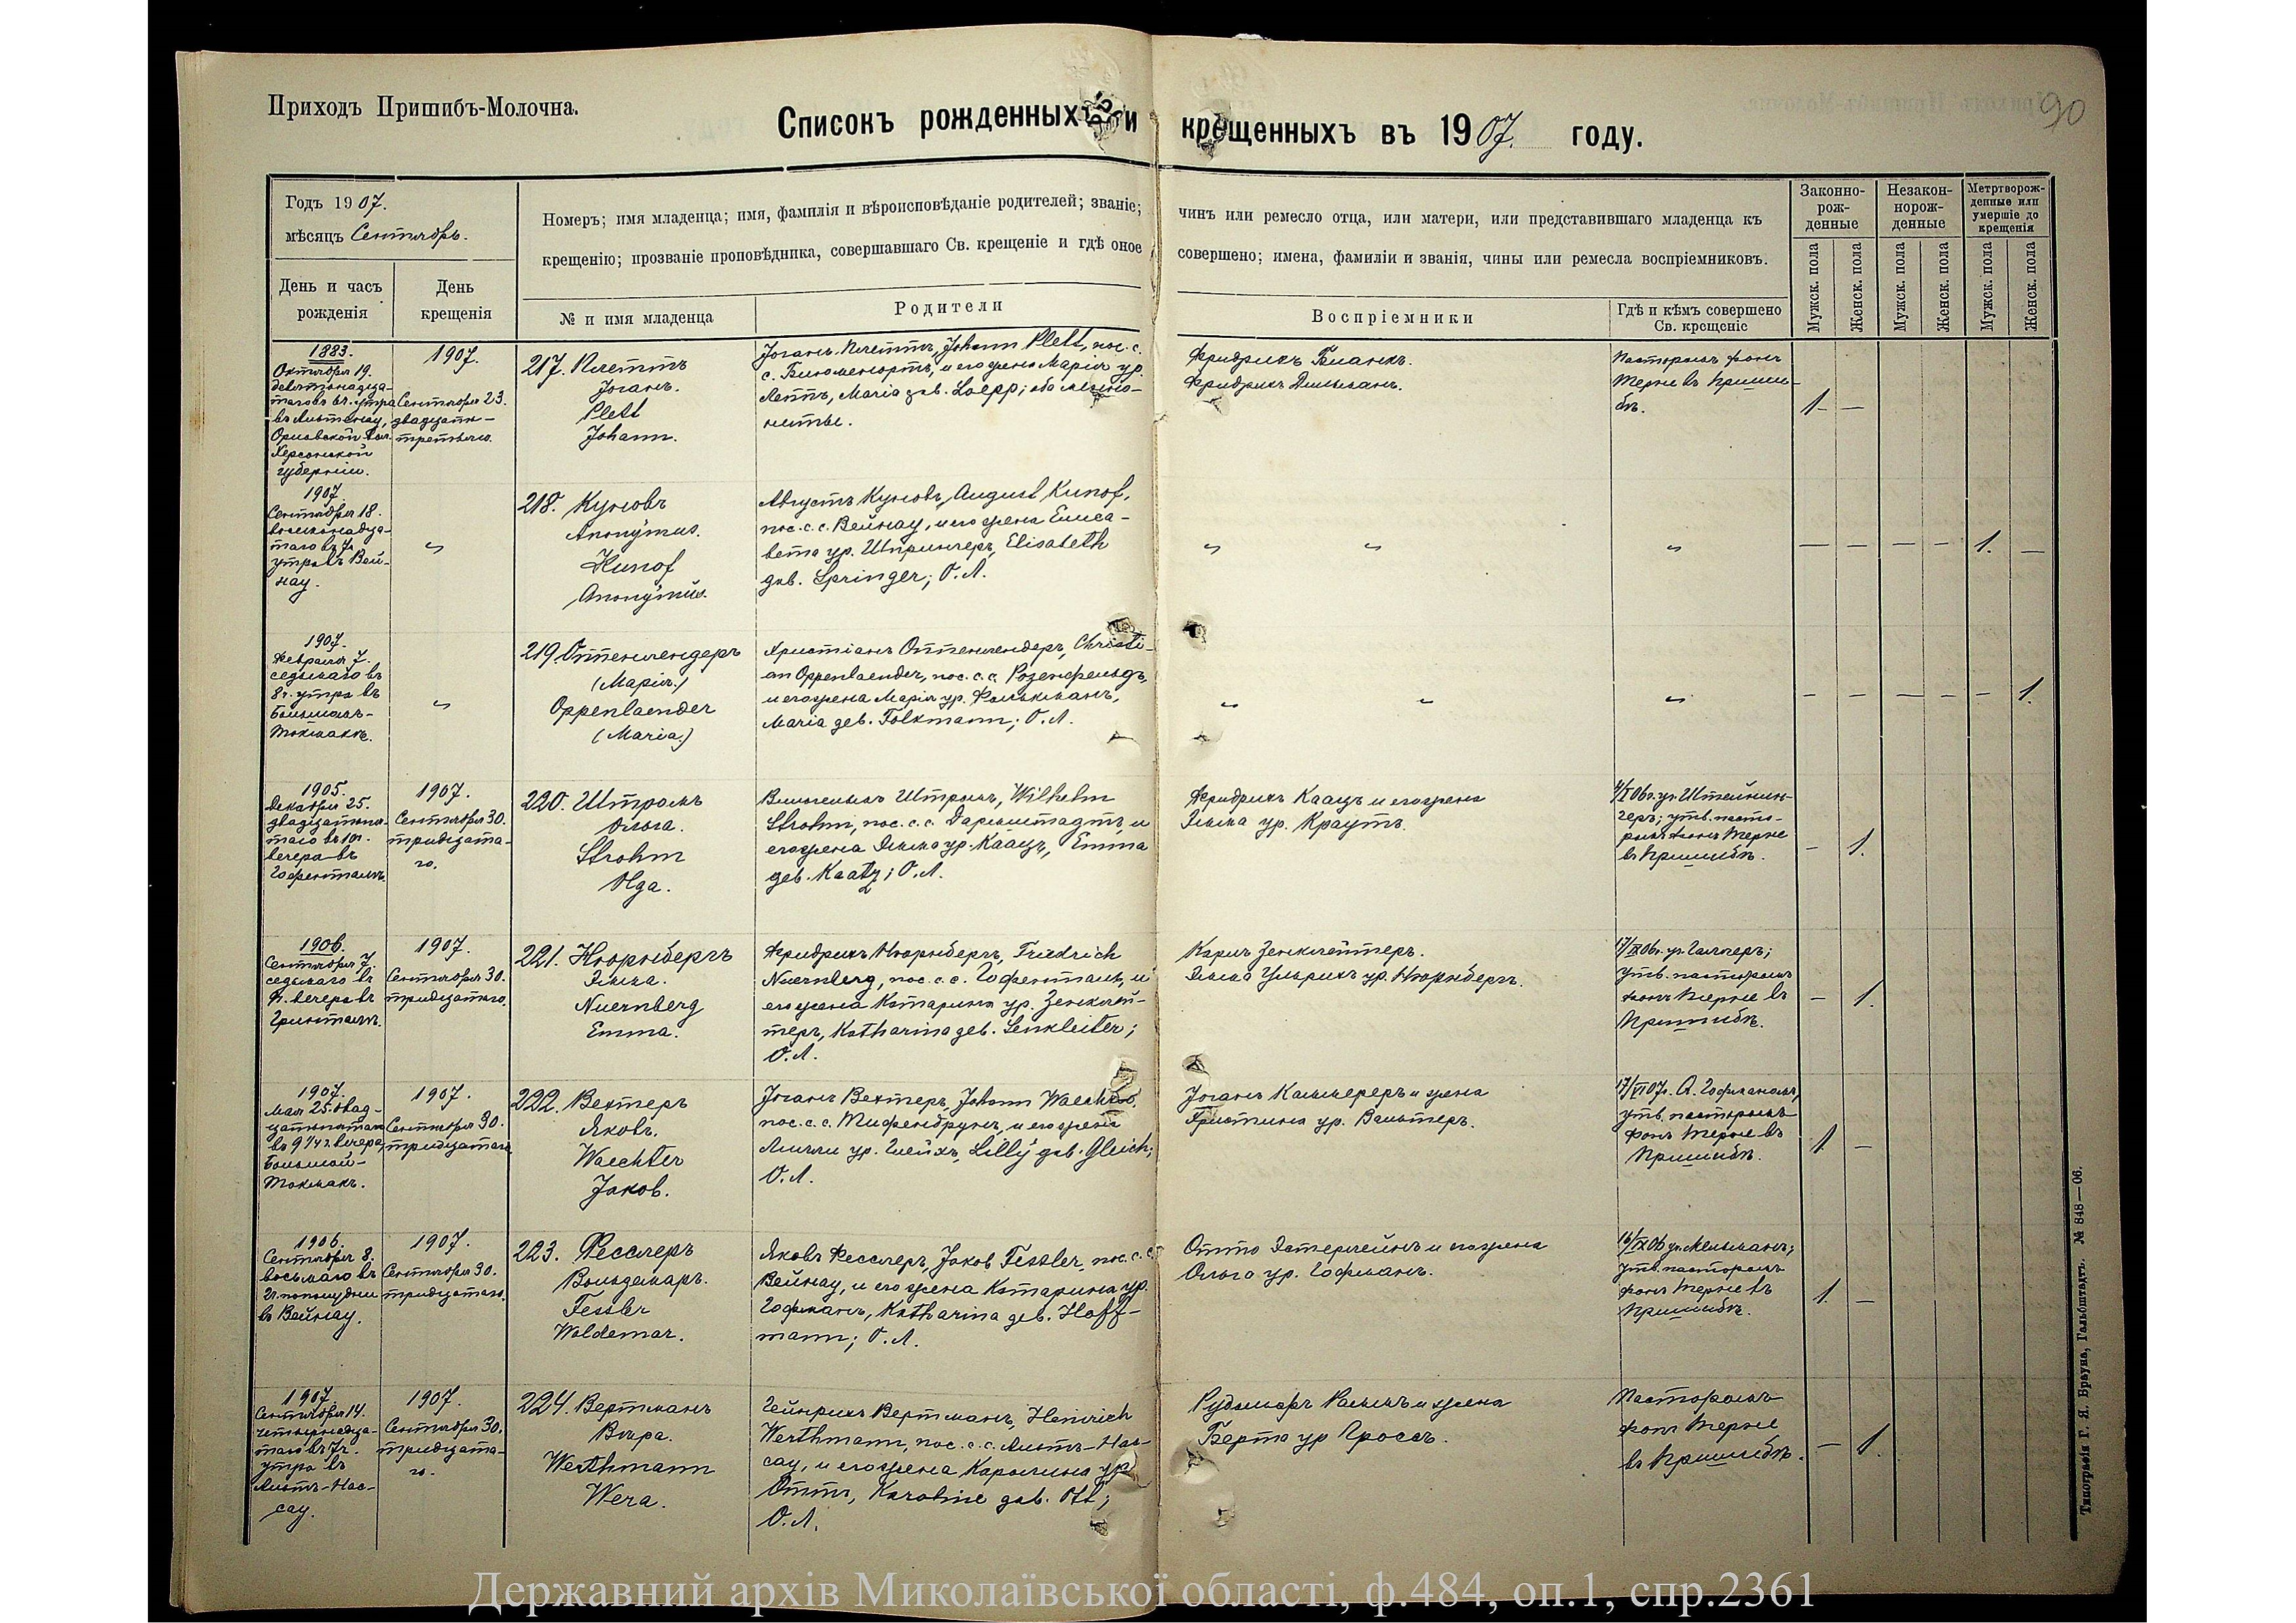 Приходъ Пришибъ-Молочна.
90
Списокъ рожденныхъ и крещенныхъ въ 1907. году.
Годъ 1907.
мѣсяцъ Сентябрь.
День и часъ рожденія
День крещенія
Номеръ; имя младенца; имя, фамилія и вѣроисповѣданіе родителей; званіе; чинъ или ремесло отца, или матери, или представившаго младенца къ
крещенію; прозваніе проповѣдника, совершавшаго Св. крещеніе и гдѣ оное совершено; имена, фамиліи и званія, чины или ремесла воспріемниковъ.
№ и имя младенца
Родители
Воспріемники
Гдѣ и кѣмъ совершено Св. крещеніе
Законно-рож-денные
Незакон-норож-денные
Метртворож-денные или умершіе до крещенія
Мужск. пола
Женск. пола
Мужск. пола
Женск. пола
Мужск. пола
Женск. пола
1883.
Октября 19.
девятонадца-
таго въ 6ч. утра
въ Альтенау,
Орловской вол.
Херсонской
губерніи.
1907.
Сентября 23.
двадцать-
третьяго.
217. Плеттъ
Іоганъ.
Plett
Johann.
Іоганъ Плеттъ, Johann Plett, пос. с.
с. Блюменортъ, и его жена Марія ур.
Леппъ, Maria geb. Loepp; оба менно-
ниты.
Фридрихъ Бланкъ.
Фридрихъ Дильманъ.
Пасторомъ фонъ
Терне въ Приши-
бѣ.
1. —
1907.
Сентября 18.
восьмонадца-
таго въ 7ч.
утра въ Вей-
нау.
"
218. Куновъ
Anonymus.
Kunof
Anonymus.
Августъ Куновъ, August Kunof,
пос. с. с. Вейнау, и его жена Елиса-
вета ур. Шпрингеръ, Elisabeth
geb. Springer; О. Л.
" "
"
— — — — 1. —
1907.
Февраля 7.
седьмаго въ
8ч. утра въ
Большомъ-
Токмакѣ.
"
219. Оппенлендеръ
(Марія.)
Oppenlaender
(Maria.)
Христіанъ Оппенлендеръ, Christi-
an Oppenlaender, пос. с. с. Розенфельдъ,
и его жена Марія ур. Фолькманъ,
Maria geb. Folkmann; О. Л.
" "
"
— — — — — 1.
1905.
Декабря 25.
двадцатьпя-
таго въ 10ч.
вечера въ
Гофенталѣ.
1907.
Сентября 30.
тридцата-
го.
220. Штромъ
Ольга.
Strohm
Olga.
Вильгельмъ Штромъ, Wilhelm
Strohm, пос. с. с. Дармштадтъ, и
его жена Эмма ур. Каацъ, Emma
geb. Kaatz; О. Л.
Фридрихъ Каацъ и его жена
Эмма ур. Краутъ.
4/I 06г. уч. Штейнин-
геръ; утв. пасто-
ромъ фонъ Терне
въ Пришибѣ.
— 1.
1906.
Сентября 7.
седьмаго въ
вечера въ
Гринталѣ.
1907.
Сентября 30.
тридцатаго.
221. Нюрнбергъ
Эмма.
Nuernberg
Emma.
Фридрихъ Нюрнбергъ, Friedrich
Nuernberg, пос. с. с. Гофенталь, и
его жена Катарина ур. Зенклей-
теръ, Katharina geb. Senkleiter;
О. Л.
Карлъ Зенклейтеръ.
Эмма Ульрихъ ур. Нюрнбергъ.
17/IX 06г. уч.
утв. пасторомъ
фонъ Терне въ
Пришибѣ.
— 1.
1907.
Мая 25. двад-
цатьпятаго
въ 9 1/4 ч. вечера,
Большой-
Токмакъ.
1907.
Сентября 30.
тридцатаго
222. Вехтеръ
Яковъ.
Waechter
Jakob.
Іоганъ Вехтеръ, Johann Waechter,
пос. с. с. Тифенбрунъ, и его жена
Лилли ур. Глейхъ, Lilly geb. Gleich;
О. Л.
Іоганъ Каммереръ и жена
Христина ур. Вальтеръ.
17/VI 07г. А. Гофманомъ,
утв. пасторомъ
фонъ Терне въ
Пришибѣ.
1. —
1906.
Сентября 8.
восьмаго въ
2ч. пополудни
въ Вейнау.
1907.
Сентября 30.
тридцатаго.
223. Фесслеръ
Вольдемаръ.
Fessler
Woldemar.
Яковъ Фесслеръ, Jakob Fessler, пос. с. с.
Вейнау, и его жена Катарина ур.
Гофманъ, Katharina geb. Hoff-
mann; О. Л.
Отто Эстерлейнъ и его жена
Ольга ур. Гофманъ.
16/IX 06 уч. Мельманъ;
утв. пасторомъ
фонъ Терне въ
Пришибѣ.
1. —
1907.
Сентября 14.
четырнадца-
таго въ 7ч.
утра въ
Альтъ-Нас-
сау.
1907.
Сентября 30.
тридцата-
го.
224. Вертманъ
Вѣра.
Werthmann
Wera.
Гейнрихъ Вертманъ, Heinrich
Werthmann, пос. с. с. Альтъ-Нас-
сау, и его жена Каролина ур.
Оттъ, Karoline geb. Ott;
О. Л.
Рудольфъ Раммъ и жена
Берта ур Гроссъ.
Пасторомъ
фонъ Терне
въ Пришибѣ.
— 1.
Типографія Г. Я. Брауна, Гальбштадтъ. № 848—06.
Державний архів Миколаївської області, ф.484, оп.1, спр.2361